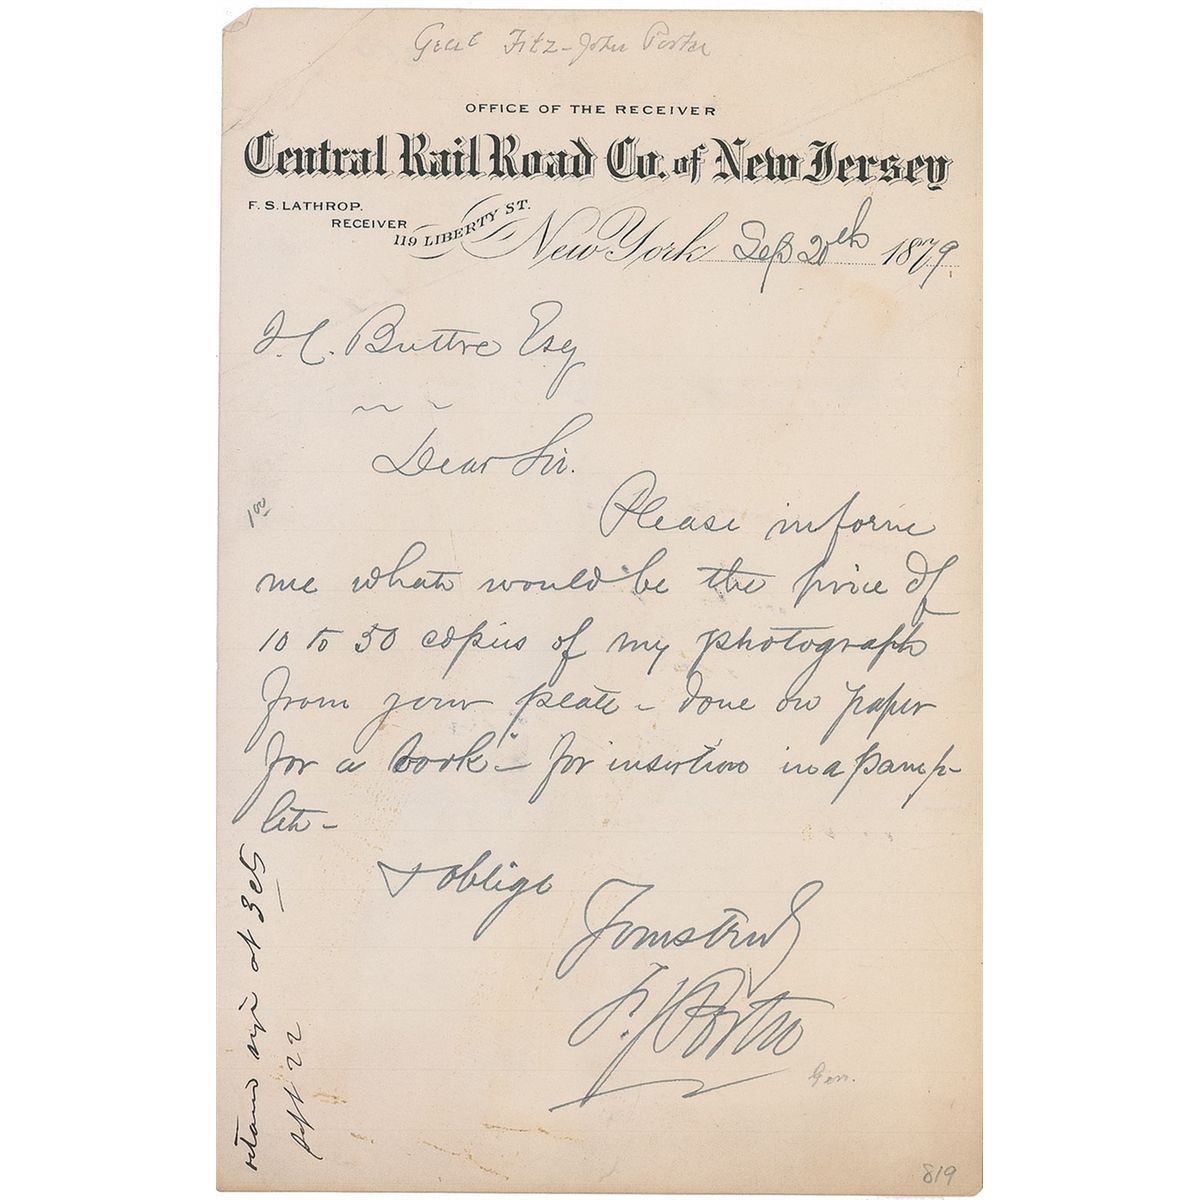 Genl Fitz-John Porter
OFFICE OF THE RECEIVER
Central Rail Road Co. of New Jersey
F. S. LATHROP.
RECEIVER
119 LIBERTY ST.
New York Sep 20th 1879
J. C. Buttre Esq
Dear Sir.
1 00
Please inform
me what would be the price of
10 to 50 copies of my photograph
from your plate – done on "paper
for a book" – for insertion in a pamp-
let –
& oblige
Yours truly
F. J. Porter
Gen.
at 3 cts
Sept 22
819